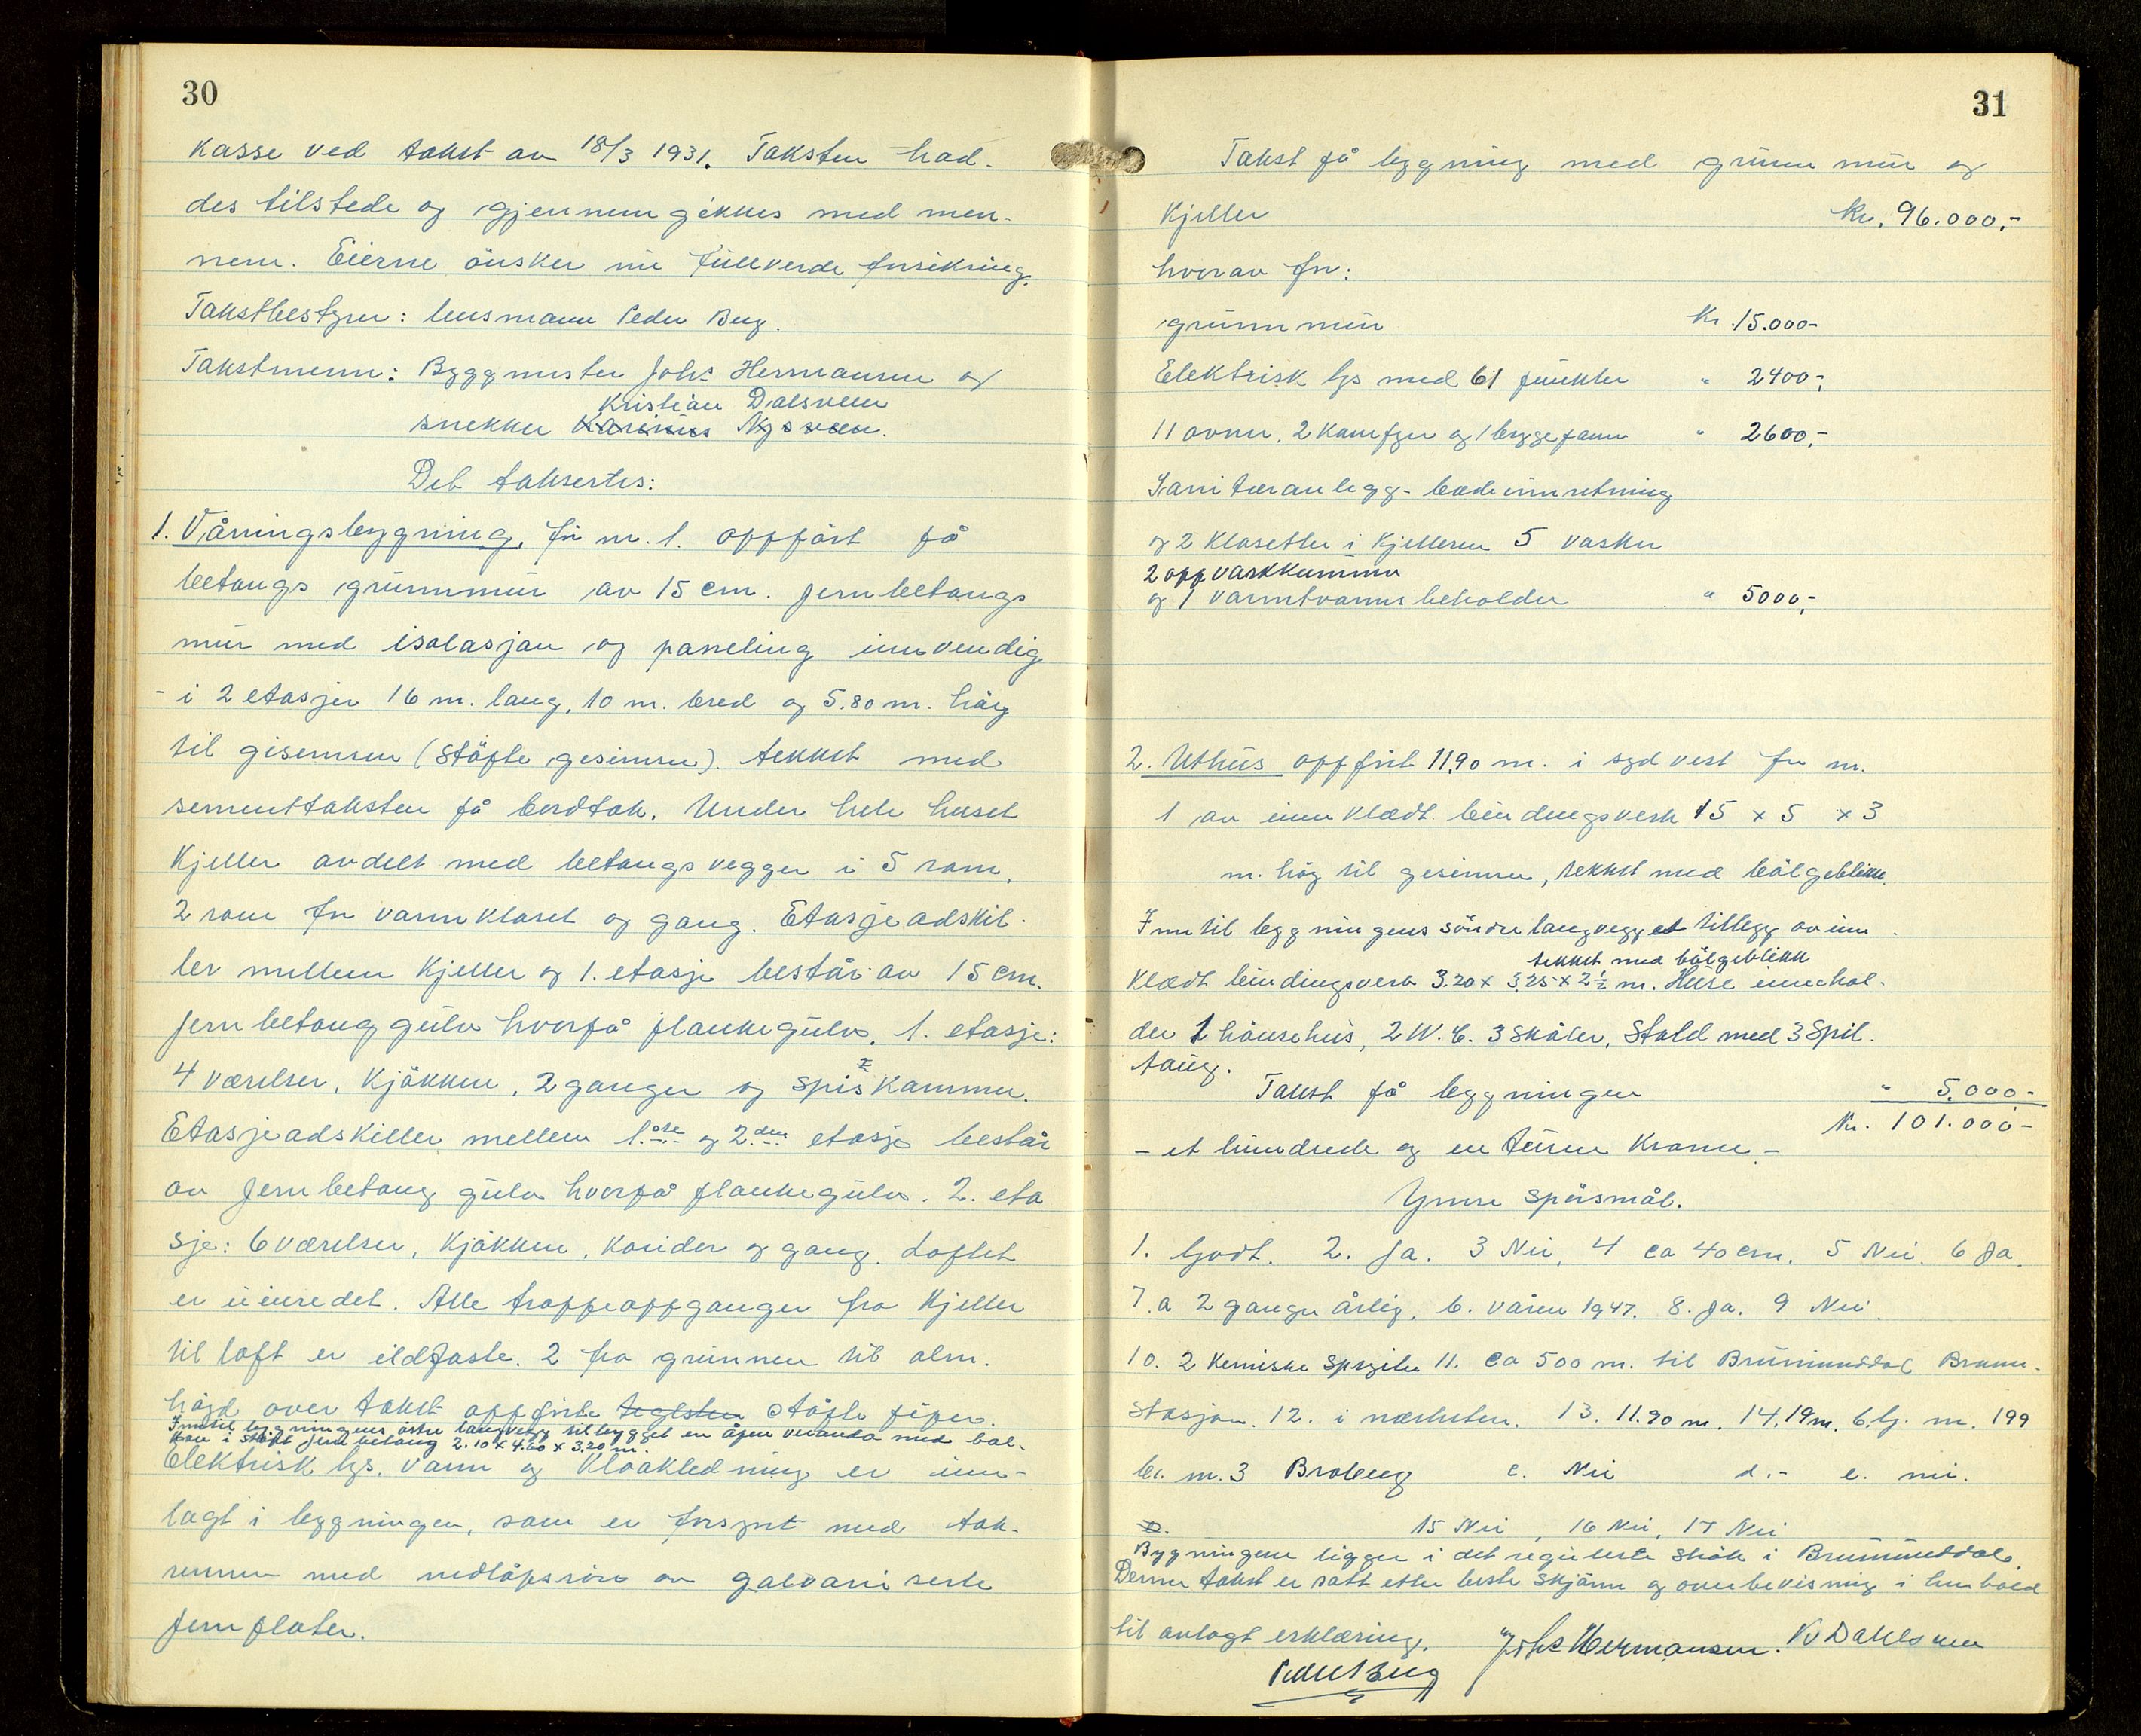 30
kasse ved takst av 18/3 1931. Taksten had-
des tilstede og gjennemgikkes med men-
nene. Eierne önsker nu fullverde forsikring.
Takstbestyrer: lensmann Peder Berg.
Takstmenn: Byggmester Johs Hermansen og
Kristian Dalsveen
snekker Karinius Nysveen.
Det taksertes:
1. Våningsbygning, br nr. 1. oppfört på
betongs grunnmur av 15 cm. jernbetongs
mur med isolasjon og paneling innvendig
- i 2 etasjer 16 m. lang, 10 m. bred og 5.80 m. höy
til gisemsen (stöpte gesimser). tekket med
sementtaksten på bordtak. Under hele huset
kjeller avdelt med betongs vegger i 5 rom,
2 rom for vannkloset og gang. Etasjeadskil-
ler mellem kjeller og 1. etasje består av 15 cm.
jernbetong gulv hvorpå plankegulv. 1. etasje:
4 værelser, kjökken, 2 ganger og spiskammer.
Etasjeadskiller mellem 1.ste og 2.den etasje består
av jernbetong gulv hvorpå plankegulv. 2. eta
sje: 6 værelser, kjökken, koridor og gang. Loftet
er uinredet. Alle trappeoppganger fra kjeller
til loft er ildfaste. 2 fra grunnen til alm.
höyd over taket oppförte teglsten stöpte piper.
Inntil bygningens östre langvegg tilbygget en åpen veranda med bal-
kon i stöpt jernbetong 2.10 x 4.60 x 3.20 m.
Elektrisk lys, vann og kloakledning er inn-
lagt i bygningen, som er forsynt med tak-
renner med nedlöpsrör av galvaniserte
jernplater.
31
Takst på bygning med grunnmur og
kjeller kr. 96.000,-
hvorav for:
grunnmur kr. 15.000-
Elektrisk lys med 61 punkter " 2400,-
11 ovner, 2 komfyrer og 1 bryggepanne " 2600,-
Sanitæranlegg - badeinnretning
og 2 klosetter i kjelleren 5 vasker
2 oppvaskkummer
og 1 varmtvannsbeholder " 5000,-
2. Uthus oppfört 11,90 m. i syd vest for nr.
1 av innklædt bindingsverk 15 x 5 x 3
m. höy til gesimsen, tekket med bölgeblikk.
Inntil bygningens söndre langvegg et tillegg av inn
tekket med bölgeblikk
klædt bindingsverk 3.20 x 3.25 x 2½ m. Huse innehol-
der 1 hönsehus, 2 W.C. 3 skåler, Stald med 3 spil-
taug.
Takst på bygningen " 5.000-
Kr. 101.000-
- et hundrede og en tusen kroner -
Ymse spörsmål.
1. Godt. 2. Ja. 3 Nei, 4 ca 40 cm. 5 Nei. 6 Ja.
7. a 2 ganger årlig, b. våren 1947. 8. Ja. 9 Nei.
10. 2 kemiske sprøiter 11. ca 500 m. til Brumunddal Brann-
stasjon. 12. i nærheten. 13. 11.90 m. 14. 19 m. b. lj. nr. 199
br. nr. 3 Broberg c. Nei d. - e. nei.
15 Nei, 16 Nei, 17 Nei
Bygningene ligger i det regulerte strök i Brumunddal.
Denne takst er satt etter beste skjönn og overbevisning i henhold
til avlagt erklæring.
Johs Hermansen. Kr Dahlsveen
Peder Berg